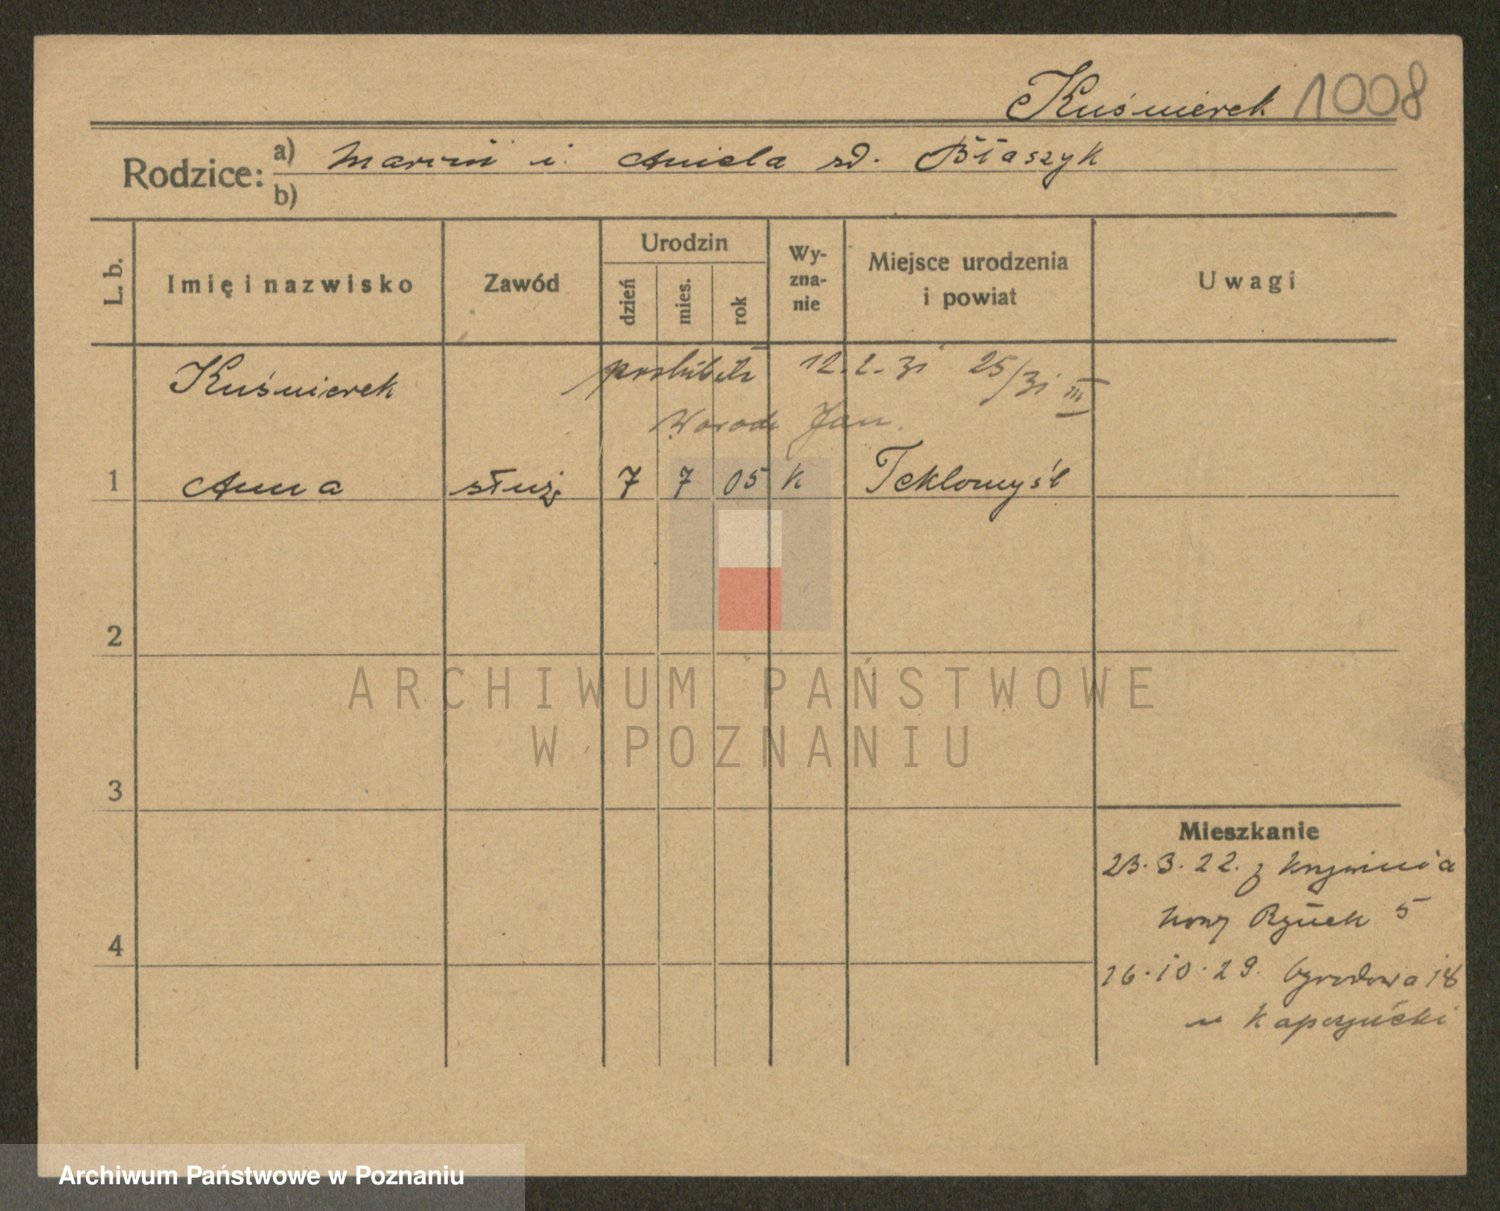 Kuśnierek 1008
Rodzice: a) Marcin i Aniela zd. Błaszyk
b)
L. b. Imię i nazwisko Zawód Urodzin dzień mies. rok Wyznanie Miejsce urodzenia i powiat Uwagi
Kuśnierek poślubiła 12.2.31 25/31 III
Jan
1 Anna służ. 7 7 05 k Teklomyśl
2
ARCHIWUM PAŃSTWOWE
W POZNANIU
3
Mieszkanie
23.3.22. z Krzywinia
Nowy Rynek 5
4
26.10.29. Ogrodowa 18
u Kapczyński
Archiwum Państwowe w Poznaniu